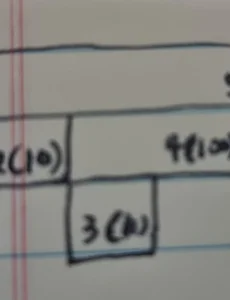 2(10)
4(100)
3(10)